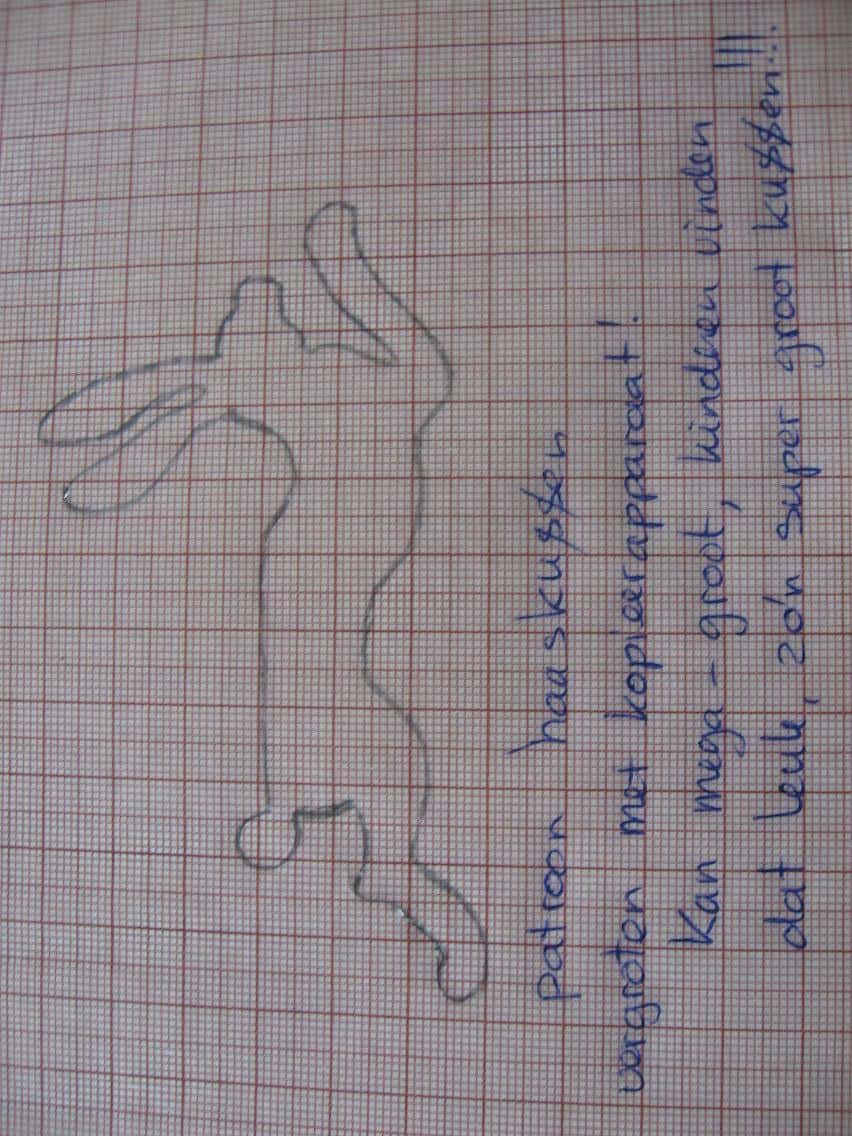 patroon haaskussen
vergroten met kopieerapparaat!
Kan mega-groot, kinderen vinden
dat leuk, zo'n super groot kussen!!!